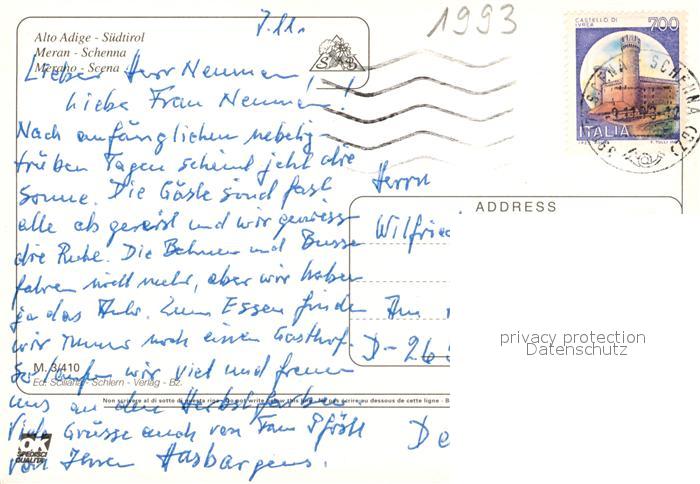 7.11.
1993
Alto Adige - Südtirol
Meran - Schenna
Merano - Scena
S B
CASTELLO DI IVREA
700
ITALIA
SCENA SCHENNA (BZ)
Lieber Herr Neumann!
Liebe Frau Neumann!
Nach anfänglichen nebelig-
trüben Tagen scheint jetzt die
Sonne. Die Gäste sind fast
alle abgereist und wir geniessen
die Ruhe. Die Bahnen und Busse
fahren nicht mehr, aber wir haben
ja das Auto. Zum Essen finden
wir immer noch einen Gasthof.
So laufen wir viel und freuen
uns an den Herbstfarben.
Viele Grüsse auch von Frau Pföstl
von Ihren Hasbargens.
Herrn
ADDRESS
Wilfried
Am
D-26
De
privacy protection
Datenschutz
M. 3/410
Ed. Sciliar - Schlern - Verlag - Bz.
Non scrivere al di sotto di questa riga - Do not write below this line - Ne pas écrire au dessous de cette ligne - B
OK
SPEDISCI
QUALITÀ